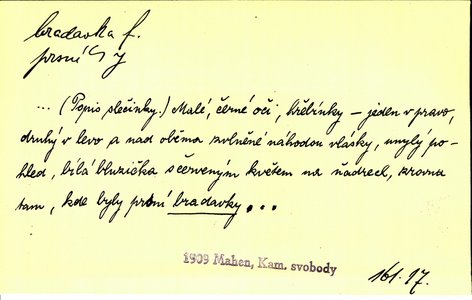 bradavka f.
prsní
... (Popis slečinky.) Malé, černé oči, hřebínky – jeden v pravo,
druhý v levo a nad oběma zvlněné náhodou vlásky, umylý po-
hled, bílá bluzička s červeným květem na ňadrech, zrovna
tam, kde byly prsní bradavky...
1909 Mahen, Kam. svobody
161.97.